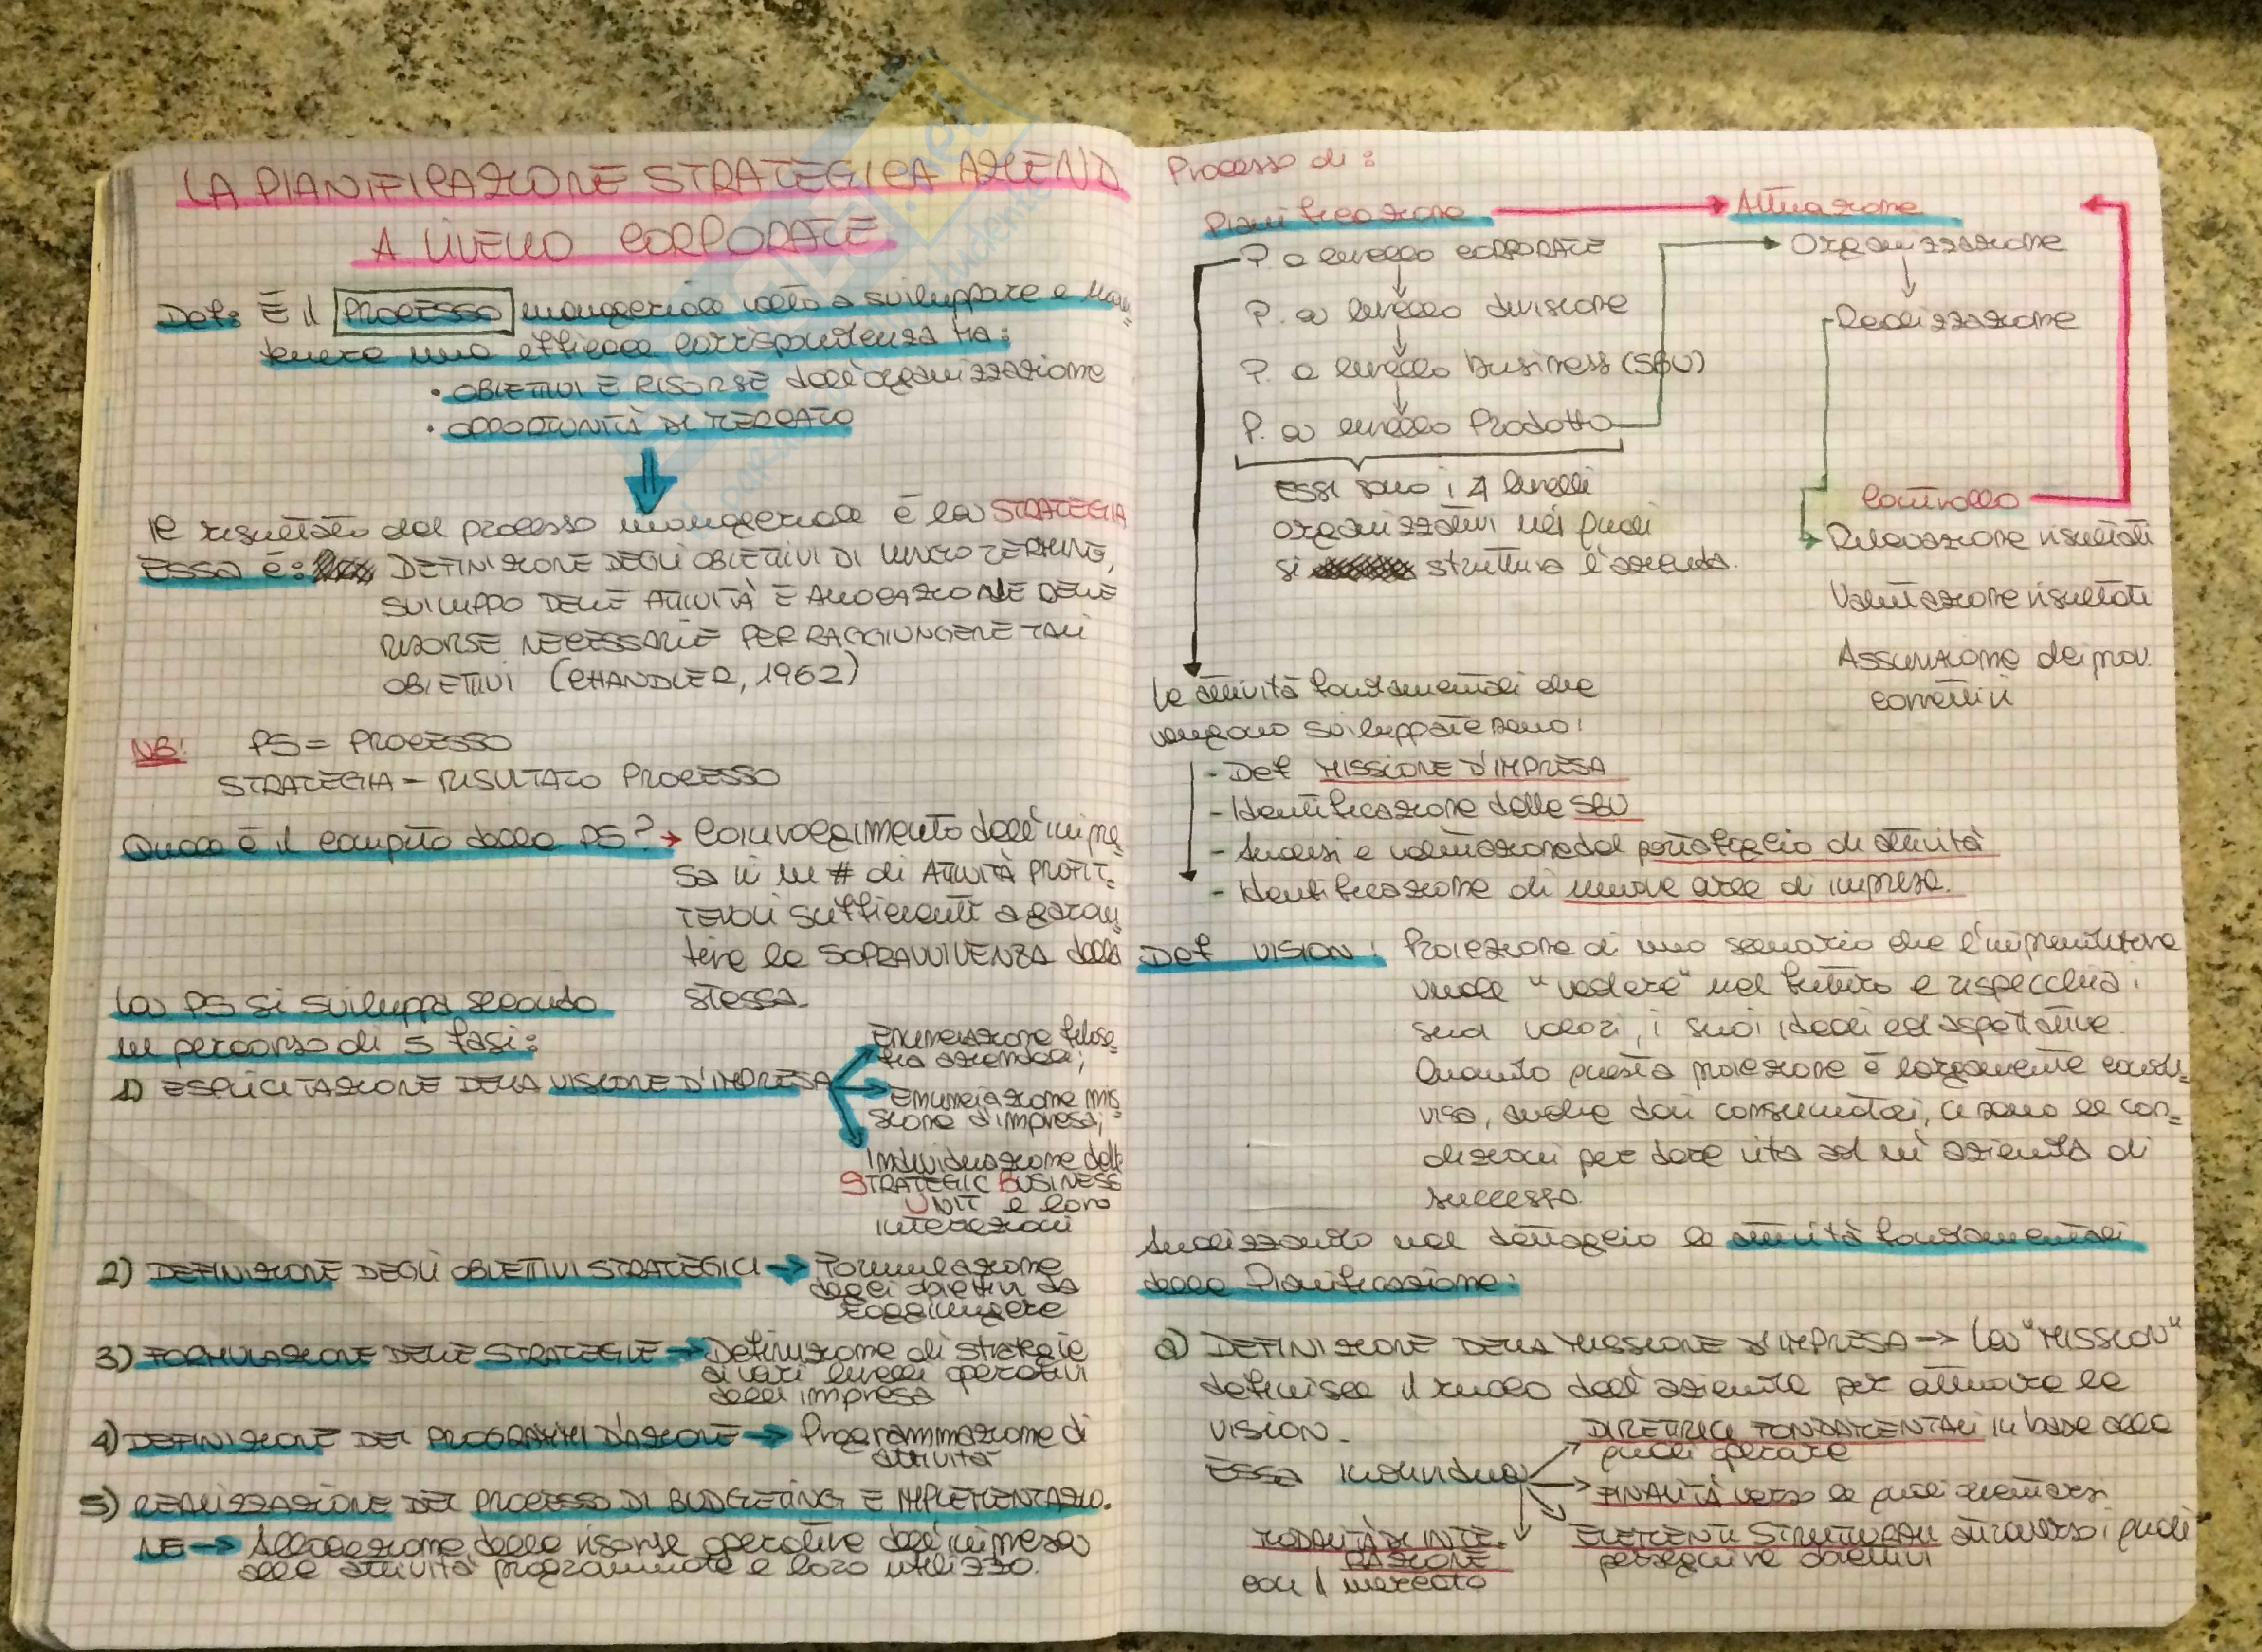 LA PIANIFICAZIONE STRATEGICA AZIEND
A LIVELLO CORPORATE
Def: È il PROCESSO manageriale volto a sviluppare e man-
tenere una efficace corrispondenza tra:
• OBIETTIVI E RISORSE dell'organizzazione
• OPPORTUNITÀ DI MERCATO
Il risultato del processo manageriale è la STRATEGIA
Essa è: DEFINIZIONE DEGLI OBIETTIVI DI LUNGO TERMINE,
SVILUPPO DELLE ATTIVITÀ E ALLOCAZIONE DELLE
RISORSE NECESSARIE PER RAGGIUNGERE TALI
OBIETTIVI (CHANDLER, 1962)
NB! PS = PROCESSO
STRATEGIA = RISULTATO PROCESSO
Quale è il compito della PS? → Coinvolgimento dell'impre-
sa in un # di ATTIVITÀ PROFIT-
TEVOLI sufficienti a garan-
tire la SOPRAVVIVENZA della
stessa.
La PS si sviluppa secondo
un percorso di 5 fasi:
1) ESPLICITAZIONE DELLA VISIONE D'IMPRESA
Enunciazione filoso-
fia aziendale;
Enunciazione mis-
sione d'impresa;
Individuazione delle
STRATEGIC BUSINESS
UNIT e loro
interazioni
2) DEFINIZIONE DEGLI OBIETTIVI STRATEGICI → Formulazione
degli obiettivi da
raggiungere
3) FORMULAZIONE DELLE STRATEGIE → Definizione di strategie
ai vari livelli operativi
dell'impresa
4) DEFINIZIONE DEI PROGRAMMI D'AZIONE → Programmazione di
attività
5) REALIZZAZIONE DEL PROCESSO DI BUDGETING E IMPLEMENTAZIO-
NE → Allocazione delle risorse operative dell'impresa
alle attività programmate e loro utilizzo.
Processo di:
Pianificazione → Attuazione
P. a livello CORPORATE
P. a livello divisione
P. a livello business (SBU)
P. a livello Prodotto
Essi sono i 4 livelli
organizzativi nei quali
si struttura l'azienda.
Organizzazione
Realizzazione
Controllo
Rilevazione risultati
Valutazione risultati
Assunzione dei prov.
correttivi
Le attività fondamentali che
vengono sviluppate sono:
- Def MISSIONE D'IMPRESA
- Identificazione delle SBU
- Analisi e valutazione del portafoglio di attività
- Identificazione di nuove aree di impresa.
Def VISION: Proiezione di uno scenario che l'imprenditore
vuole "vedere" nel futuro e rispecchia i
suoi valori, i suoi ideali ed aspettative.
Quanto questa proiezione è largamente condi-
visa, anche dai consumatori, ci sono le con-
dizioni per dare vita ad un'azienda di
successo.
Analizzando nel dettaglio le attività fondamentali
della Pianificazione:
a) DEFINIZIONE DELLA MISSIONE D'IMPRESA → La "MISSION"
definisce il ruolo dell'azienda per attuare la
VISION.
Essa individua
DIRETTRICI FONDAMENTALI in base alle
quali operare
FINALITÀ verso le quali orientarsi
ELEMENTI STRUTTURALI attraverso i quali
perseguire obiettivi
MODALITÀ DI INTE-
RAZIONE
con il mercato